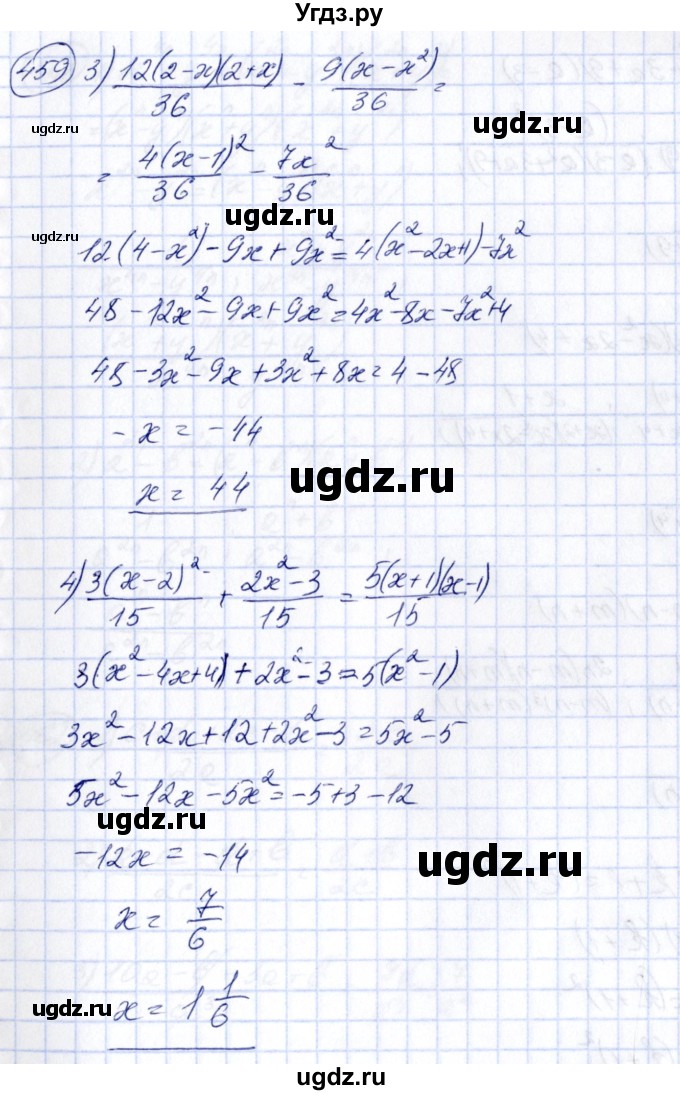 Угдз.ру
459 3) 12(2-x)(2+x)/36 - 9(x-x²)/36 =
ugdz.ru
= 4(x-1)²/36 - 7x²/36
ugdz.ru
ugdz.ru
12(4-x²)-9x+9x²=4(x²-2x+1)-7x²
48-12x²-9x+9x²=4x²-8x-7x²+4
48-3x²-9x+3x²+8x=4-48
-x=-44
ugdz.ru
x=44
4) 3(x-2)²/15 + 2x²-3/15 = 5(x+1)(x-1)/15
ugdz.ru
3(x²-4x+4)+2x²-3=5(x²-1)
3x²-12x+12+2x²-3=5x²-5
5x²-12x-5x²=-5+3-12
ugdz.ru
-12x=-14
ugdz.ru
x=7/6
x=1 1/6
ugdz.ru
ugdz.ru